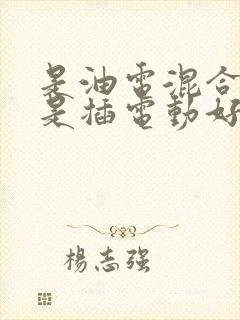 是油電混合
是插電動好
楊志強